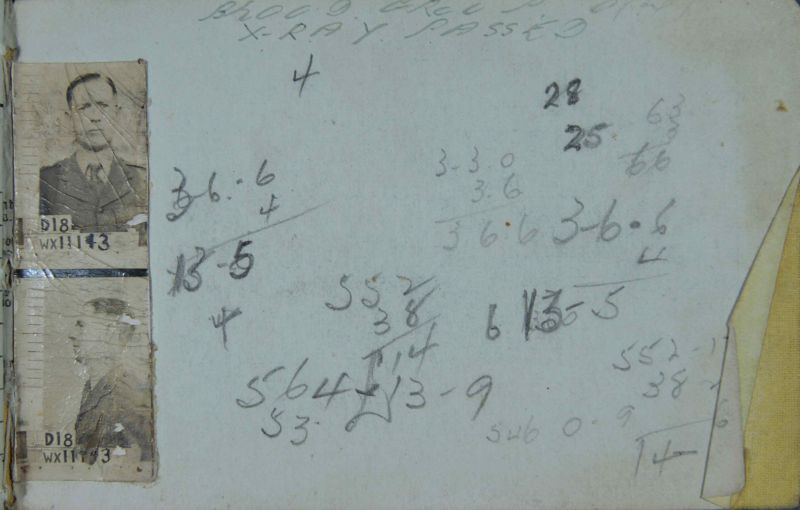 BLOOD GROUP
X-RAY PASSED
4
28
25
63
3
66
D18
WX11143
3-6-6
4
13-5
4
3-3.0
3.6
3 6.6
3-6.6
4
6 13-5
552
38
114
564-13-9
53
552-1
38
0 9
14
D18
WX11143